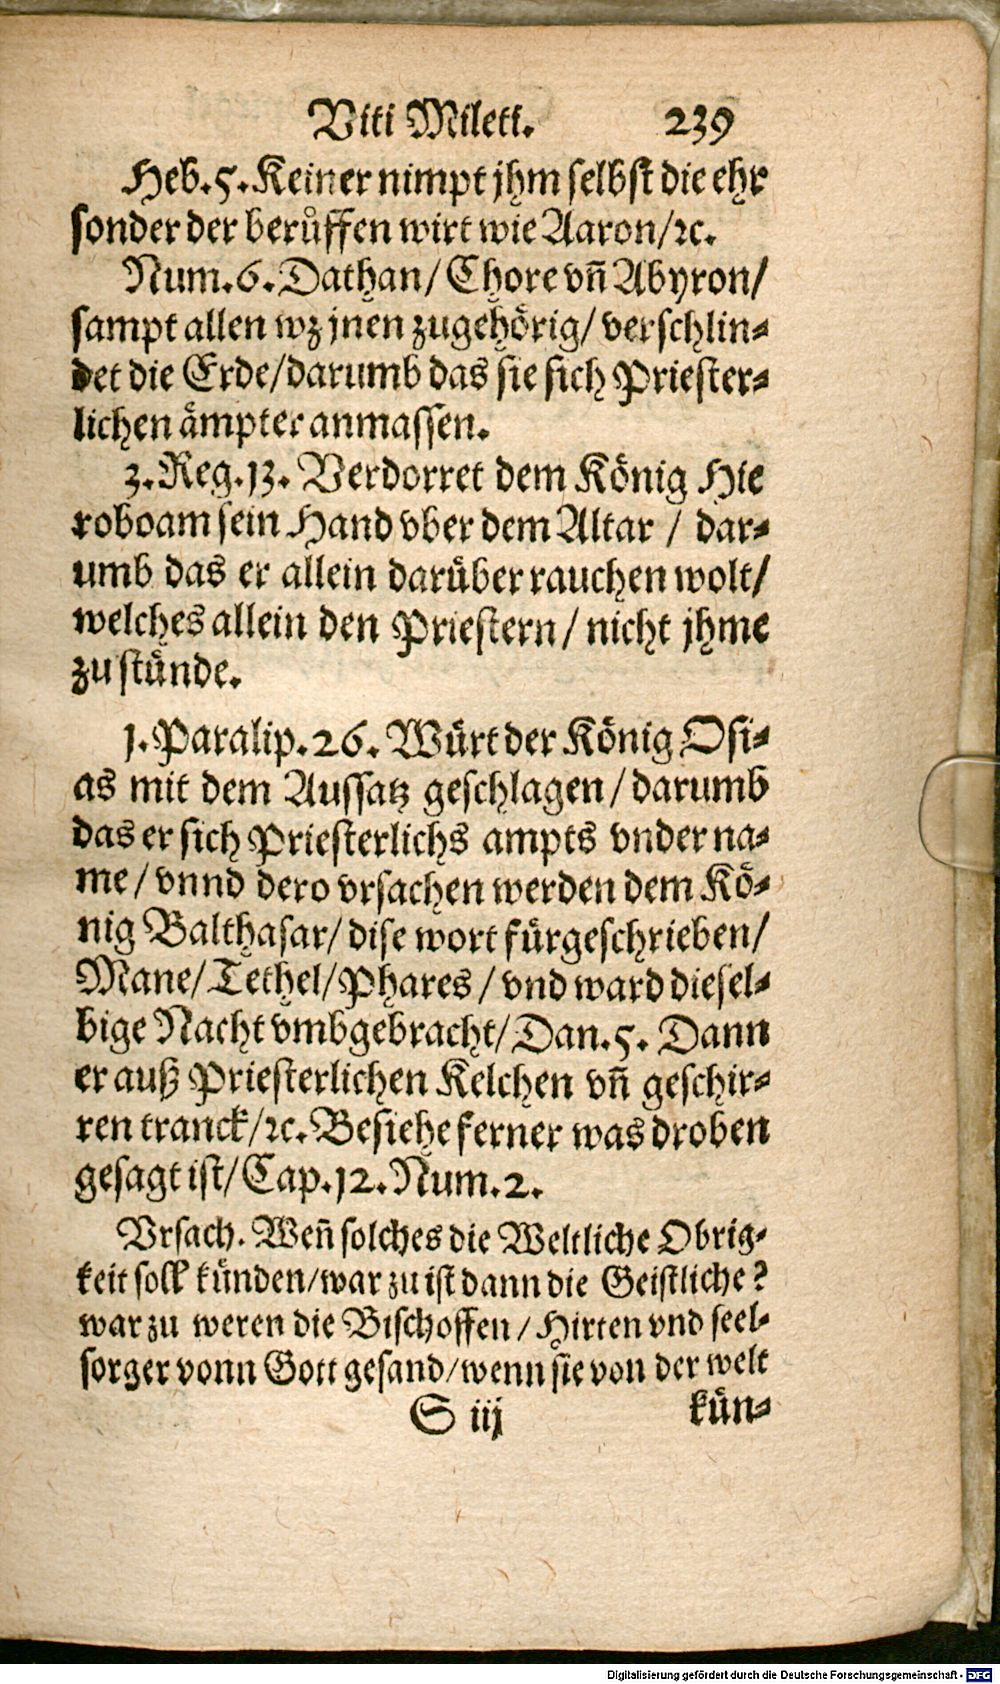 Viti Mileti. 239
Heb. 5. Keiner nimpt jhm selbst die ehr
sonder der berůffen wirt wie Aaron/ ꝛc.
Num. 6. Dathan/ Chore vñ Abyron/
sampt allen wz jnen zugehörig/ verschlin⸗
det die Erde/ darumb das sie sich Priester⸗
lichen ämpter anmassen.
3. Reg. 13. Verdorret dem König Hie
roboam sein Hand vber dem Altar / dar⸗
umb das er allein darüber rauchen wolt/
welches allein den Priestern/ nicht jhme
zu stünde.
1. Paralip. 26. Würt der König Osi⸗
as mit dem Aussatz geschlagen/ darumb
das er sich Priesterlichs ampts vnder na⸗
me/ vnnd dero vrsachen werden dem Kö⸗
nig Balthasar/ dise wort fürgeschrieben/
Mane/ Tethel/ Phares/ vnd ward diesel⸗
bige Nacht vmbgebracht/ Dan. 5. Dann
er auß Priesterlichen Kelchen vñ geschir⸗
ren tranck/ ꝛc. Besiehe ferner was droben
gesagt ist/ Cap. 12. Num. 2.
Vrsach. Weñ solches die Weltliche Obrig⸗
keit soll künden/ war zu ist dann die Geistliche?
war zu weren die Bischoffen/ Hirten vnd seel⸗
sorger vonn Gott gesand/ wenn sie von der welt
S iij kün⸗
Digitalisierung gefördert durch die Deutsche Forschungsgemeinschaft - DFG